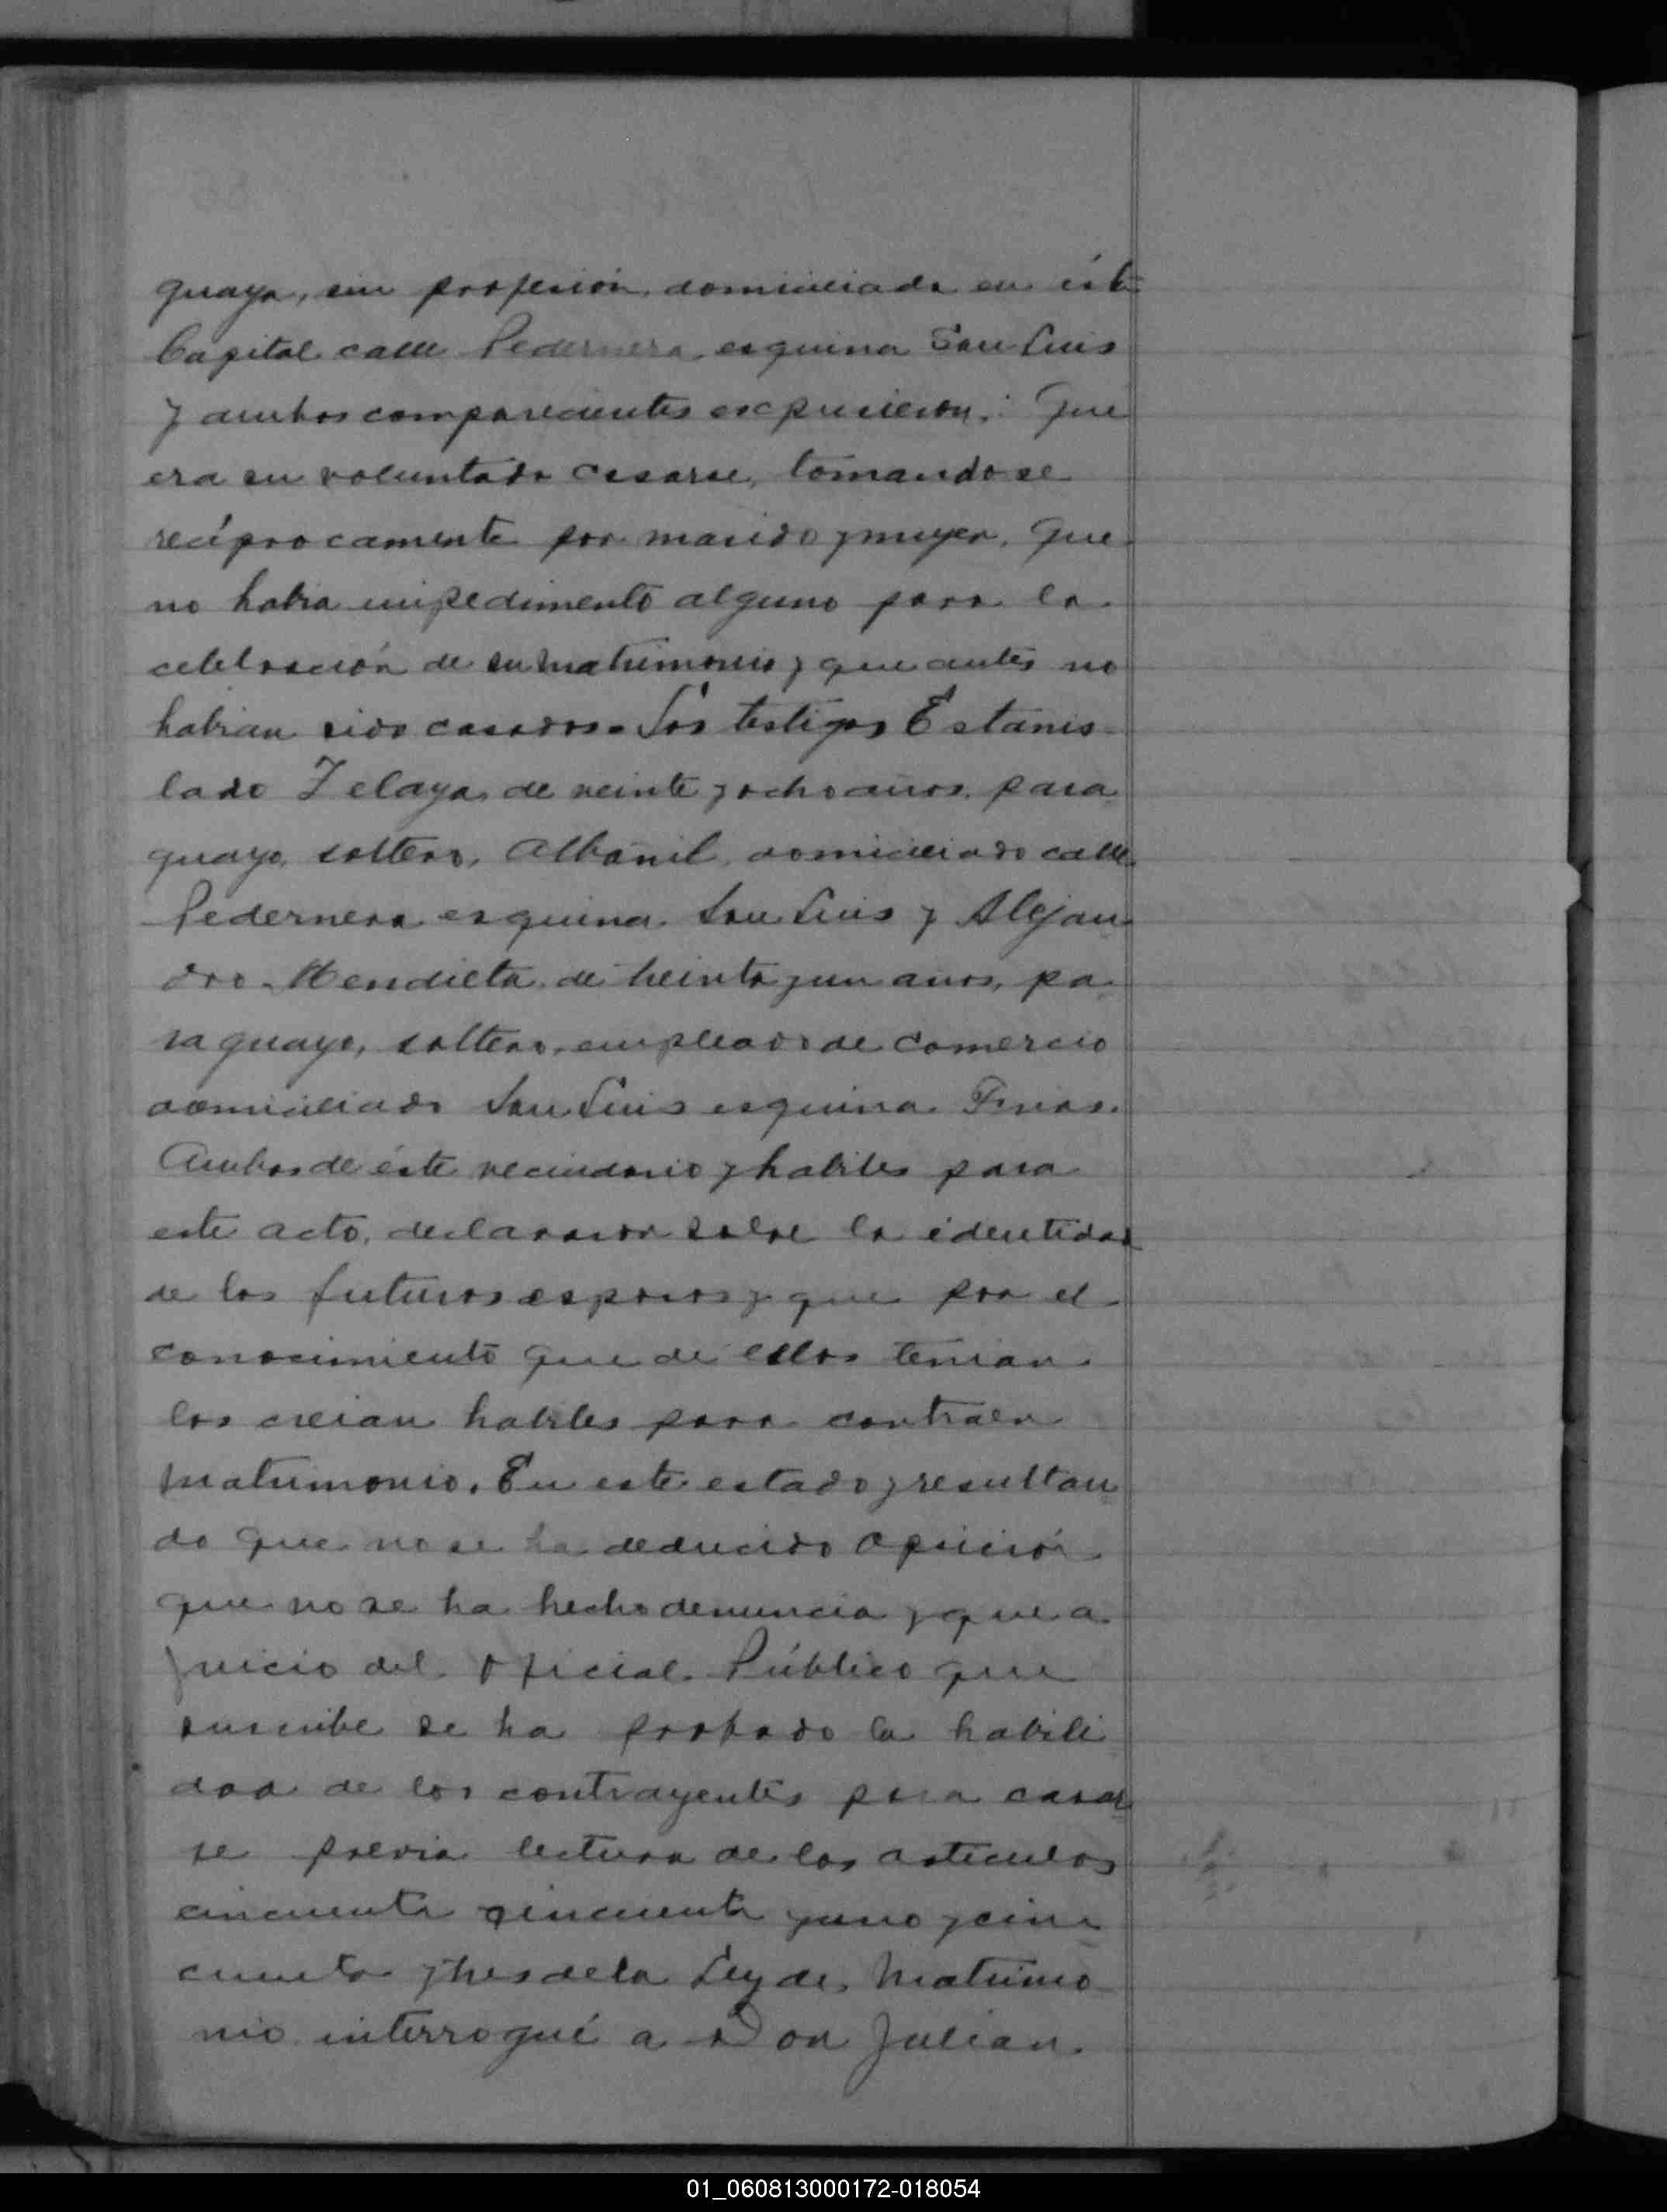 guaya, sin profesión, domiciliada en ésta
Capital calle Pedernera esquina San Luis
y ambos comparecientes expusieron: Que
era su voluntada casarse, tomandose
recíprocamente por marido y mujer. Que
no habia impedimento alguno para la
celebración de su matrimonio y que antes no
habian sido casados. Los testigos Estanis-
lado Zelaya de veinte y ocho años, para
guayo, soltero, Albanil, domiciliado calle
Pedernera esquina San Luis y Alejan
dro Mendieta de treinta y un años, pa
raguayo, soltero, empleado de Comercio
domiciliado San Luis esquina
Ambos de éste vecindario y habiles para
este acto, declararon sobre la identidad
de los futuros esposos y que por el
conocimiento que de ellos tenian
los creian habiles para contraer
matrimonio. En este estado y resultan
do que no se ha deducido opsición
que no se ha hecho denuncia y que a
juicio del Oficial Público que
suscribe se ha probado la habili
dad de los contrayentes para casar
se previa lectura de los articulos
cincuenta cincuenta y uno y cin
cuenta y tres de la Ley de Matrimo
nio interrogué a Don Julian
01_060813000172-018054